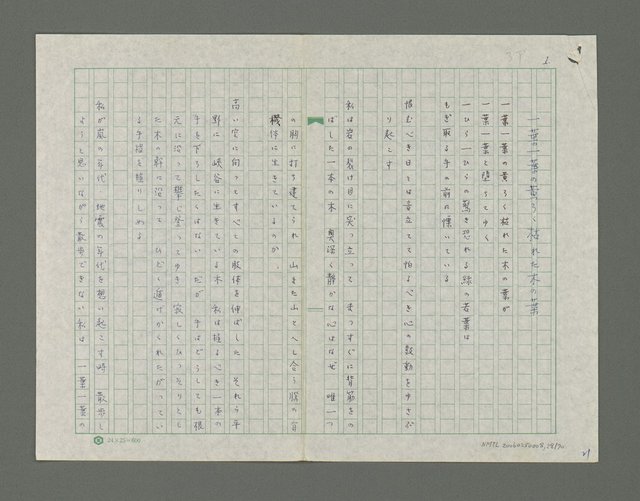 一葉一葉の黄ろく枯れた木の葉
一葉一葉の黄ろく枯れた木の葉が
一葉一葉と堕ちてゆく
一ひら一ひらの驚き恐れる緑の若葉は
もぎ取る手の前に慄いている
憎むべき日とは音立てて怕るべき心の鼓動をゆさぶ
り起こす
私は岩の裂け目に突っ立って まっすぐに背筋をの
ばした一本の木 奥深く静かな心はなぜ 唯一つ
の胸に打ち建てられ 山また山とへし合う膝の
機体に生きているのか、
高い空に向ってすべての肢体を伸ばした それら平
野に 峡谷に生きている木 私は植るべき一本の
手を下ろしたくはない だが 手はどうしても根
元に沿って攀じ登ってゆき 寂しくひっそりとし
た木の幹に沿って ひどく痛
る手
私が嵐の年代、地震の年代を想い起こす時 散歩し
ようと思いながら散歩できない私は 一葉一葉の
24×25=600
NMTL
21